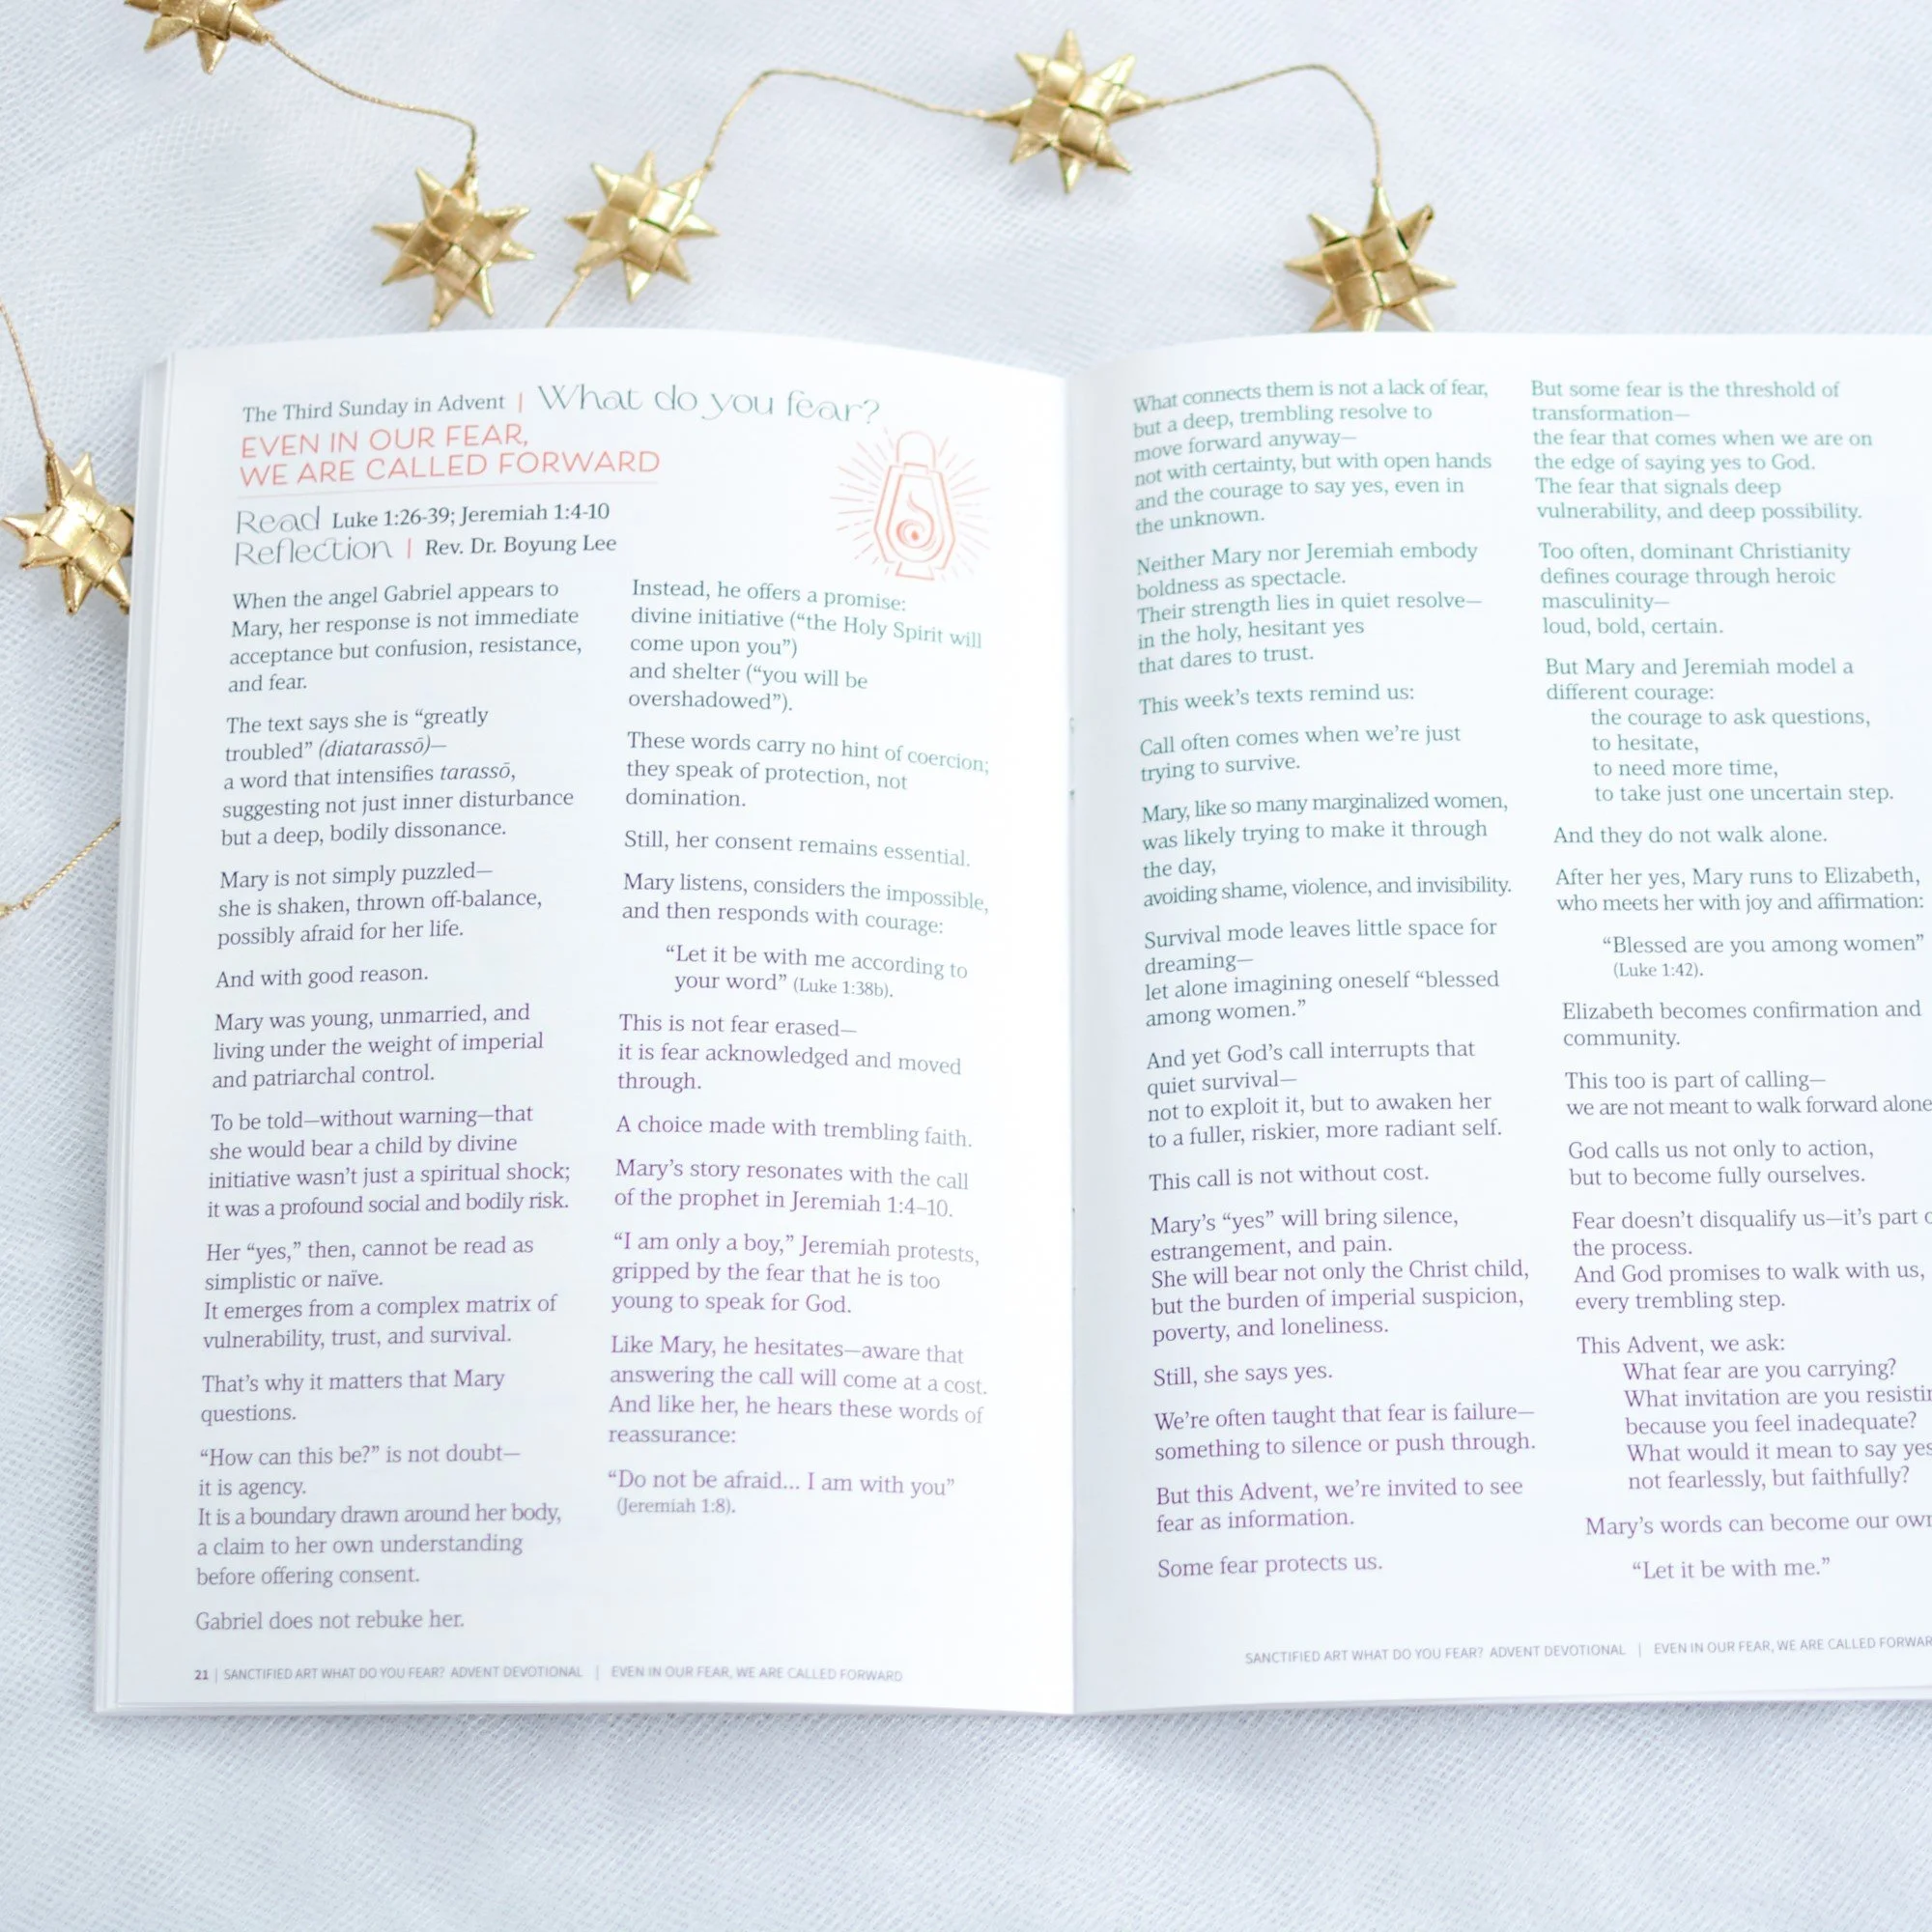 The Third Sunday in Advent | What do you fear?
EVEN IN OUR FEAR,
WE ARE CALLED FORWARD
Read Luke 1:26-39; Jeremiah 1:4-10
Reflection | Rev. Dr. Boyung Lee
When the angel Gabriel appears to
Mary, her response is not immediate
acceptance but confusion, resistance,
and fear.
The text says she is “greatly
troubled” (diatarassō)—
a word that intensifies tarassō,
suggesting not just inner disturbance
but a deep, bodily dissonance.
Mary is not simply puzzled—
she is shaken, thrown off-balance,
possibly afraid for her life.
And with good reason.
Mary was young, unmarried, and
living under the weight of imperial
and patriarchal control.
To be told—without warning—that
she would bear a child by divine
initiative wasn’t just a spiritual shock;
it was a profound social and bodily risk.
Her “yes,” then, cannot be read as
simplistic or naïve.
It emerges from a complex matrix of
vulnerability, trust, and survival.
That’s why it matters that Mary
questions.
“How can this be?” is not doubt—
it is agency.
It is a boundary drawn around her body,
a claim to her own understanding
before offering consent.
Gabriel does not rebuke her.
Instead, he offers a promise:
divine initiative (“the Holy Spirit will
come upon you”)
and shelter (“you will be
overshadowed”).
These words carry no hint of coercion;
they speak of protection, not
domination.
Still, her consent remains essential.
Mary listens, considers the impossible,
and then responds with courage:
“Let it be with me according to
your word” (Luke 1:38b).
This is not fear erased—
it is fear acknowledged and moved
through.
A choice made with trembling faith.
Mary’s story resonates with the call
of the prophet in Jeremiah 1:4–10.
“I am only a boy,” Jeremiah protests,
gripped by the fear that he is too
young to speak for God.
Like Mary, he hesitates—aware that
answering the call will come at a cost.
And like her, he hears these words of
reassurance:
“Do not be afraid... I am with you”
(Jeremiah 1:8).
21 | SANCTIFIED ART WHAT DO YOU FEAR? ADVENT DEVOTIONAL | EVEN IN OUR FEAR, WE ARE CALLED FORWARD
What connects them is not a lack of fear,
but a deep, trembling resolve to
move forward anyway—
not with certainty, but with open hands
and the courage to say yes, even in
the unknown.
Neither Mary nor Jeremiah embody
boldness as spectacle.
Their strength lies in quiet resolve—
in the holy, hesitant yes
that dares to trust.
This week’s texts remind us:
Call often comes when we’re just
trying to survive.
Mary, like so many marginalized women,
was likely trying to make it through
the day,
avoiding shame, violence, and invisibility.
Survival mode leaves little space for
dreaming—
let alone imagining oneself “blessed
among women.”
And yet God’s call interrupts that
quiet survival—
not to exploit it, but to awaken her
to a fuller, riskier, more radiant self.
This call is not without cost.
Mary’s “yes” will bring silence,
estrangement, and pain.
She will bear not only the Christ child,
but the burden of imperial suspicion,
poverty, and loneliness.
Still, she says yes.
We’re often taught that fear is failure—
something to silence or push through.
But this Advent, we’re invited to see
fear as information.
Some fear protects us.
But some fear is the threshold of
transformation—
the fear that comes when we are on
the edge of saying yes to God.
The fear that signals deep
vulnerability, and deep possibility.
Too often, dominant Christianity
defines courage through heroic
masculinity—
loud, bold, certain.
But Mary and Jeremiah model a
different courage:
the courage to ask questions,
to hesitate,
to need more time,
to take just one uncertain step.
And they do not walk alone.
After her yes, Mary runs to Elizabeth,
who meets her with joy and affirmation:
“Blessed are you among women”
(Luke 1:42).
Elizabeth becomes confirmation and
community.
This too is part of calling—
we are not meant to walk forward alone
God calls us not only to action,
but to become fully ourselves.
Fear doesn’t disqualify us—it’s part
the process.
And God promises to walk with us,
every trembling step.
This Advent, we ask:
What fear are you carrying?
What invitation are you
because you feel inadequate?
What would it mean to say yes
not fearlessly, but faithfully?
Mary’s words can become our own
“Let it be with me.”
SANCTIFIED ART WHAT DO YOU FEAR? ADVENT DEVOTIONAL | EVEN IN OUR FEAR, WE ARE CALLED